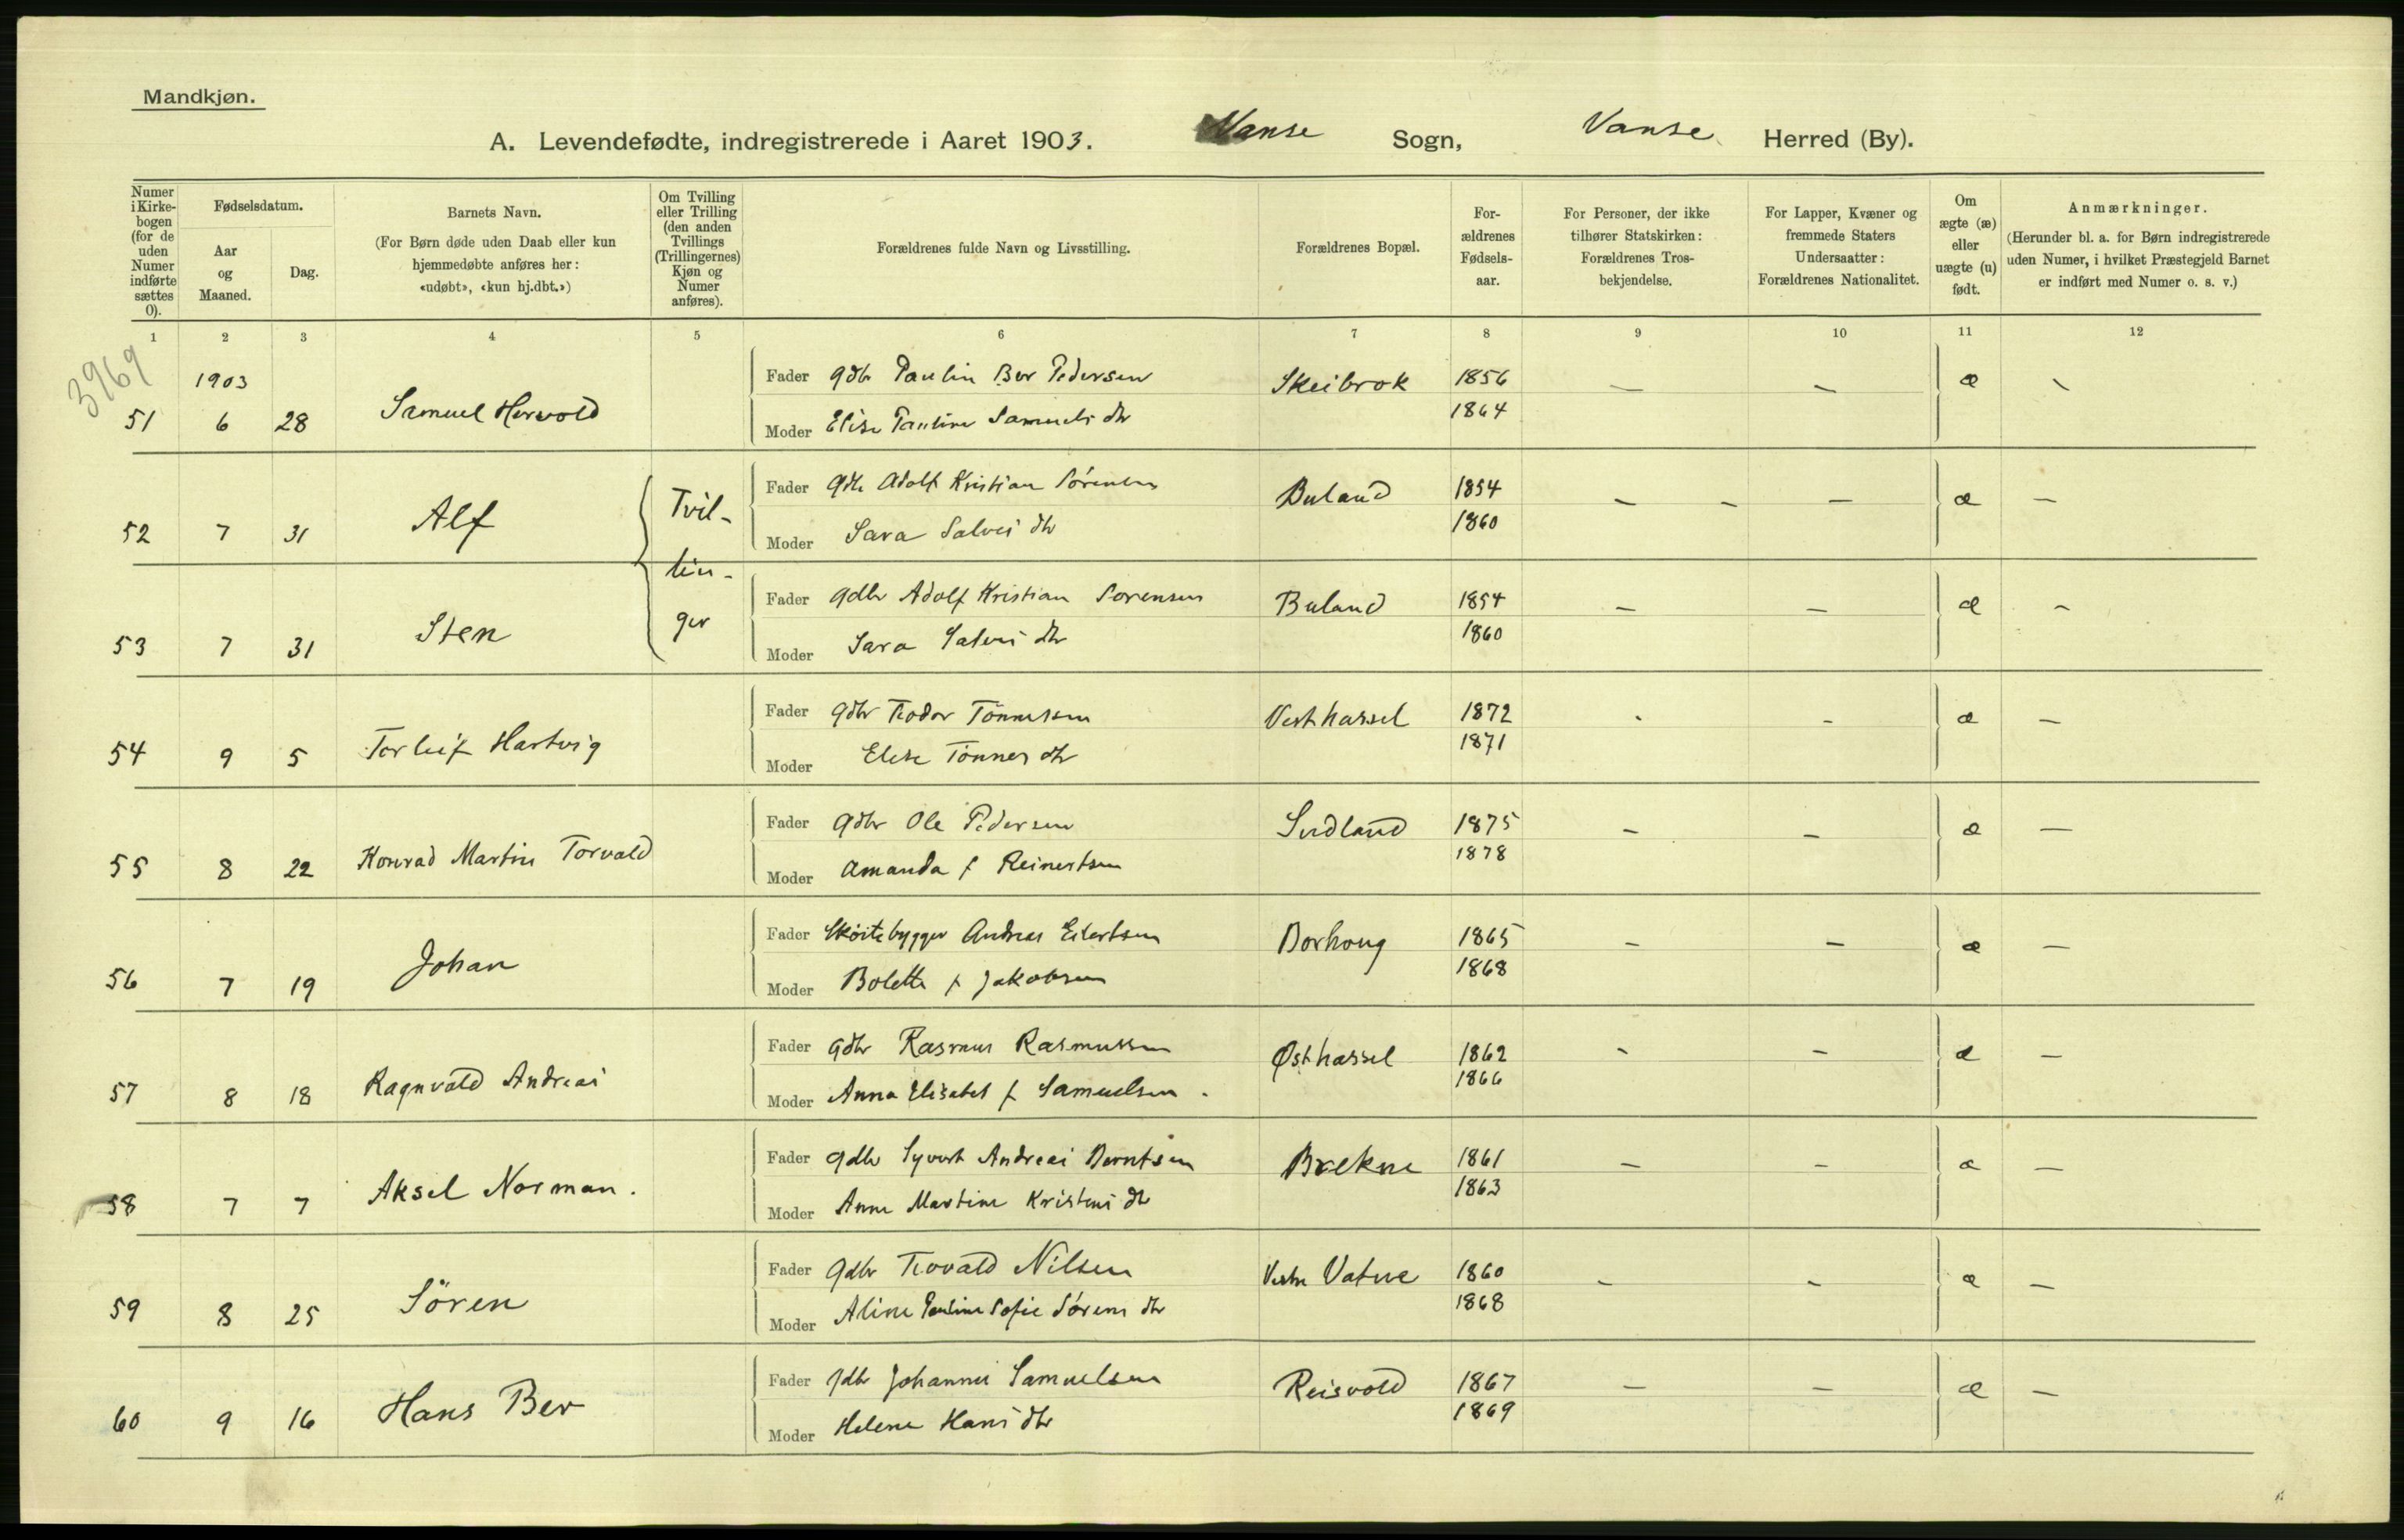 Mandkjøn.
A. Levendefødte, indregistrerede i Aaret 1903. Vanse Sogn, Vanse Herred (By).
Numer i Kirkebogen (for de uden Numer indførte sættes 0).
Fødselsdatum.
Aar og Maaned.
Dag.
Barnets Navn.
(For Børn døde uden Daab eller kun
hjemmedøbte anføres her:
«udøbt», «kun hj.dbt.»)
Om Tvilling eller Trilling (den anden Tvillings (Trillingernes) Kjøn og Numer anføres).
Forældrenes fulde Navn og Livsstilling.
Forældrenes Bopæl.
For-
ældrenes
Fødsels-
aar.
For Personer, der ikke
tilhører Statskirken:
Forældrenes Tros-
bekjendelse.
For Lapper, Kvæner og
fremmede Staters
Undersaatter:
Forældrenes Nationalitet.
Om
ægte (æ)
eller
uægte (u)
født.
Anmærkninger.
(Herunder bl. a. for Børn indregistrerede
uden Numer, i hvilket Præstegjeld Barnet
er indført med Numer o. s. v.)
1 2 3 4 5 6 7 8 9 10 11 12
3969
1903 Fader Gdbr Paulin Ber Pedersen Skeibrok 1856 — — æ —
51 6 28 Samuel Hervold Moder Elise Pauline Samuels dtr 1864
Fader Gdbr Adolf Kristian Sørensen Buland 1854 — — — æ —
52 7 31 Alf Tvil- Moder Sara Salves dtr 1860
lin-
Fader Gdbr Adolf Kristian Sørensen Buland 1854 — — æ —
53 7 31 Sten ger Moder Sara Salves dtr 1860
Fader Gdbr Teodor Tønnessen Vesthassel 1872 - — æ —
54 9 5 Torleif Hartvig Moder Elise Tønnes dtr 1871
Fader Gdbr Ole Pedersen 1875 — — æ —
55 8 22 Konrad Martin Torvald Moder Amanda f Reinertsen 1878
Fader Skøitebygger Andreas Eilertsen Borhoug 1865 — — æ —
56 7 19 Johan Moder Bolette f Jakobsen 1868
Fader Gdbr Rasmus Rasmussen Østhassel 1862 — — æ —
57 8 18 Ragnvald Andreas Moder Anna Elisabet f Samuelsen. 1866
Fader Gdbr Syvert Andreas Berntsen Brekne 1861 — — æ —
58 7 7 Aksel Norman. Moder Anne Martine Kristens dtr 1863
Fader Gdbr Torvald Nilsen Vestre Vatne 1860 — — æ —
59 8 25 Sören Moder Aline Pauline Sofie Sørens dtr 1868
Fader Gdbr Johannes Samuelsen Reisvold 1867 — — æ —
60 9 16 Hans Ber Moder Helene Hans dtr 1869